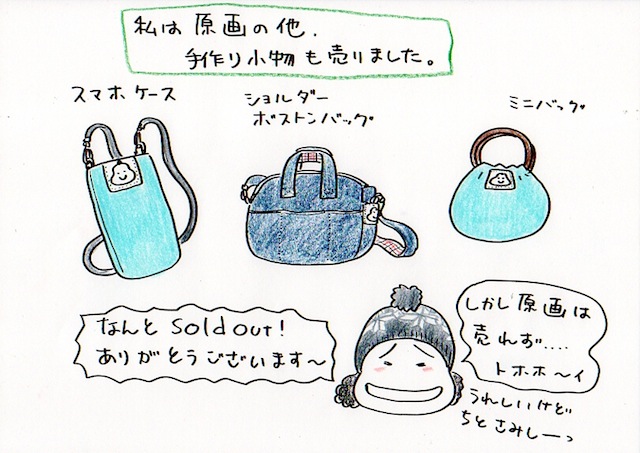 私は原画の他、
手作り小物も売りました。
スマホケース
ショルダー
ボストンバッグ
ミニバッグ
なんとSold out!
ありがとうございます〜
しかし原画は
売れず....
トホホ〜イ
うれしいけど
ちとさみしーっ